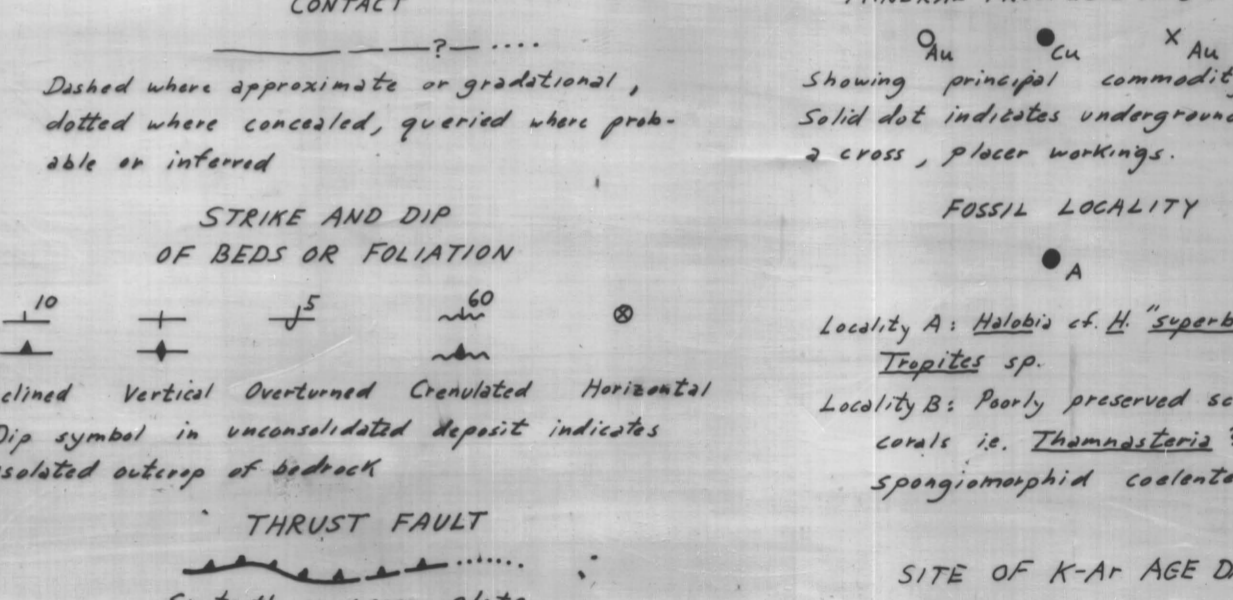 CONTACT
?
Dashed where approximate or gradational,
dotted where concealed, queried where prob-
able or inferred
STRIKE AND DIP
OF BEDS OR FOLIATION
10 5 60
clined Vertical Overturned Crenulated Horizontal
Dip symbol in unconsolidated deposit indicates
isolated outcrop of bedrock
THRUST FAULT
Au Cu x Au
Showing principal commodit
Solid dot indicates underground
a cross, placer workings.
FOSSIL LOCALITY
A
Locality A: Halobia cf. H. "superb
Tropites sp.
Locality B: Poorly preserved sc
corals ie. Thamnasteria ?
spongiomorphid coelente
SITE OF K-Ar AGE D